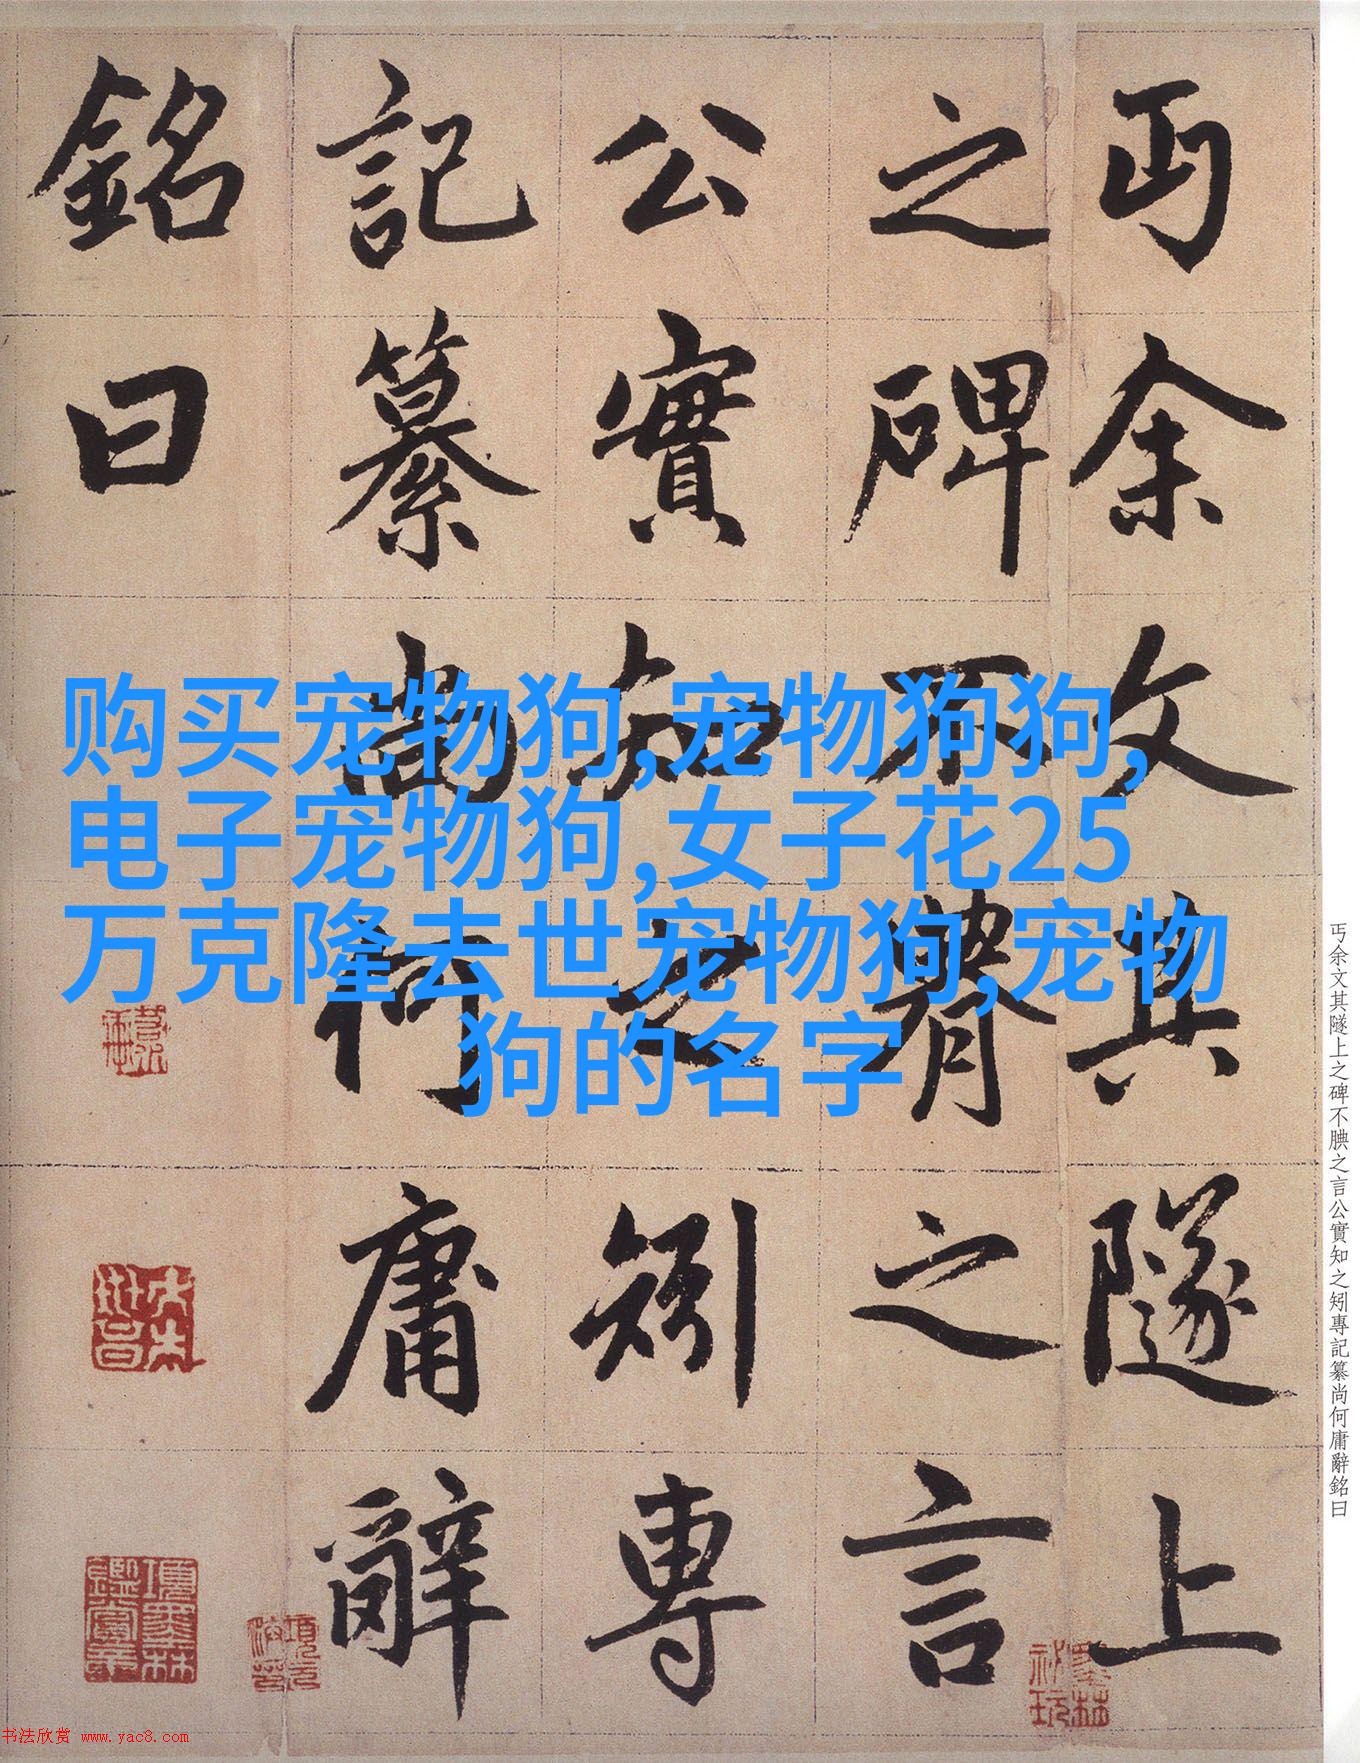 丐余文其隧上
之碑不腆之言
公實知之矧專
記纂尚何庸辭
銘曰
购买宠物狗,宠物狗狗,
电子宠物狗,女子花25
万克隆去世宠物狗,宠物
狗的名字
丐余文其隧上之碑不腆之言公實知之矧專記纂尚何庸辭銘曰
项墨林鑑賞章
书法欣赏 www.yac8.com